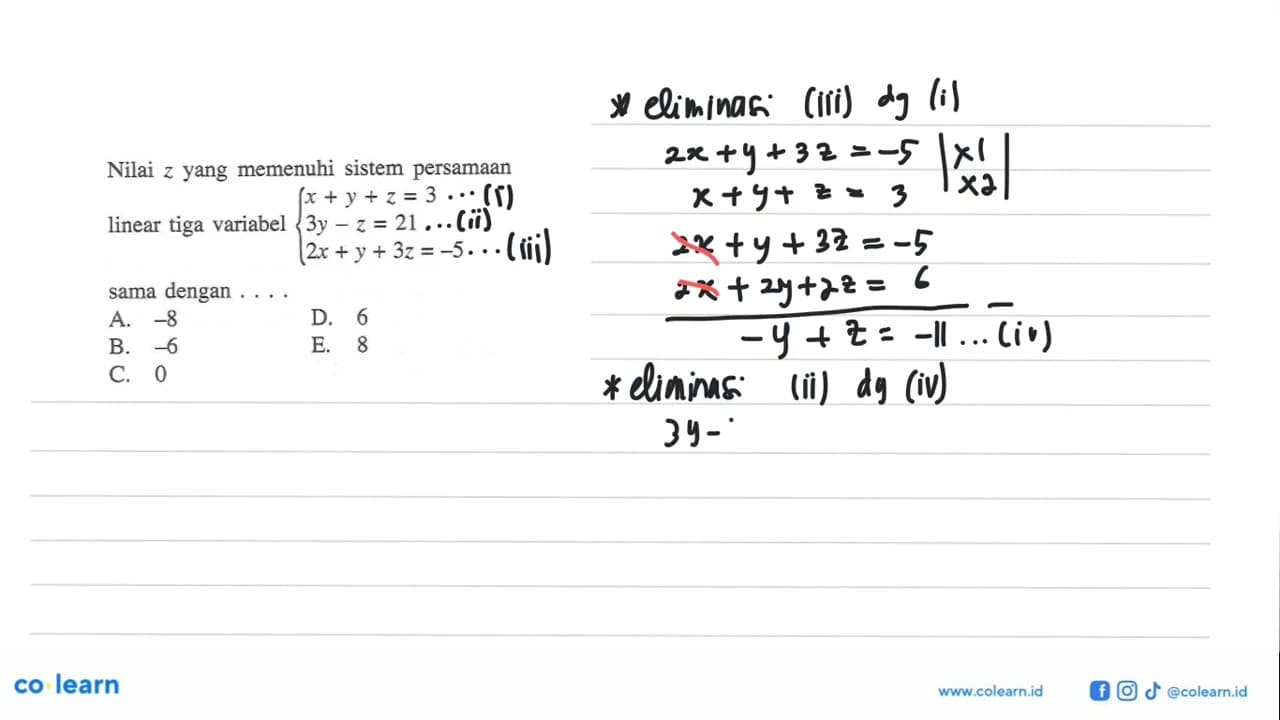 Nilai z yang memenuhi sistem persamaan
linear tiga variabel
x + y + z = 3 ... (i)
3y – z = 21 ... (ii)
2x + y + 3z = –5 ... (iii)
sama dengan . . . .
A. –8
B. –6
C. 0
D. 6
E. 8
* eliminasi (iii) dg (i)
2x + y + 3z = -5 |x1|
x + y + z = 3 |x2|
2x + y + 3z = -5
2x + 2y + 2z = 6 –
-y + z = -11 ... (iv)
* eliminasi (ii) dg (iv)
3y -
co learn
www.colearn.id
@colearn.id